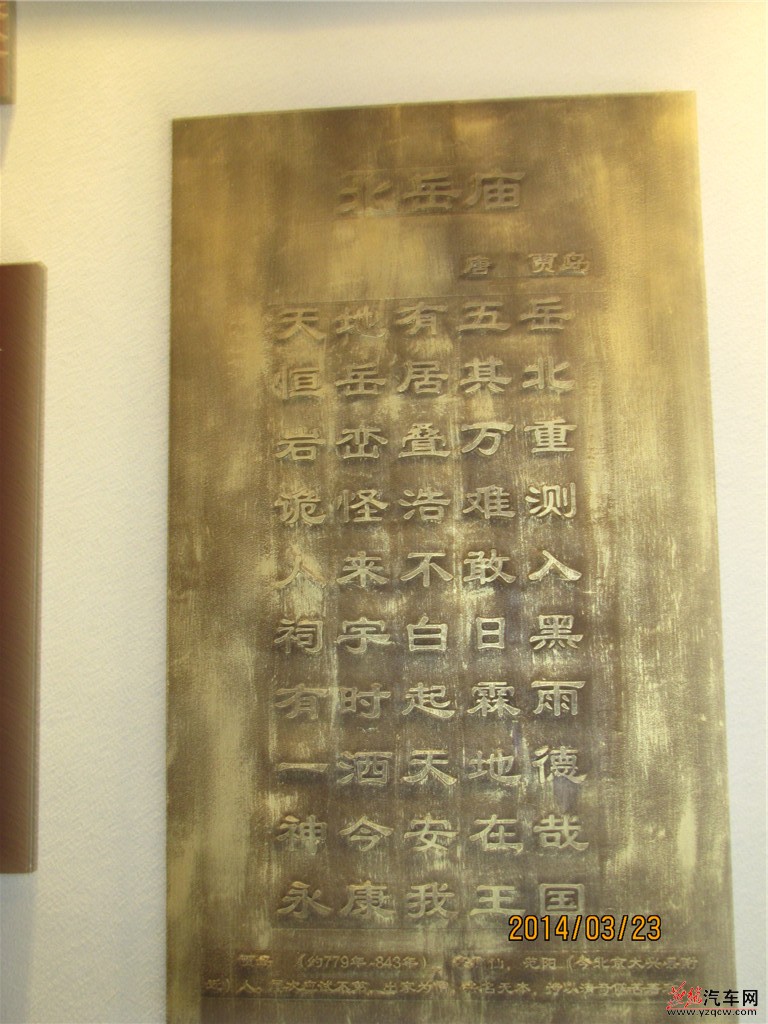 北岳庙
唐 贾岛
天地有五岳
恒岳居其北
岩峦叠万重
诡怪浩难测
人来不敢入
祠宇白日黑
有时起霖雨
一洒天地德
神今安在哉
永康我王国
(约779年-843年) 仙，范阳（今北京大兴县附
近）人。
2014/03/23
汽车网
www.yzqcw.com